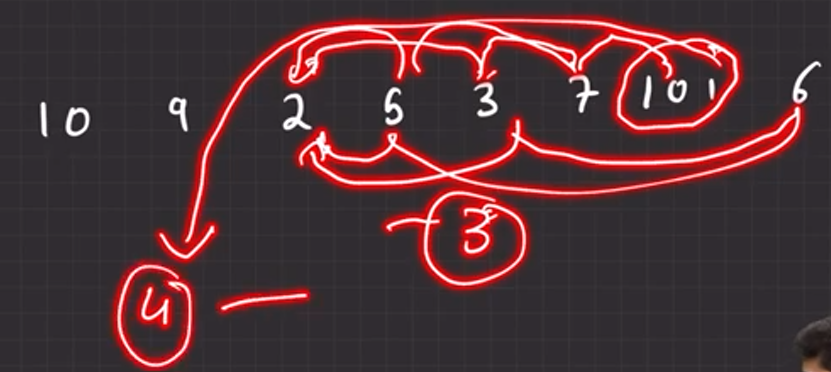 10 9 2 5 3 7 101 6
3
4 —